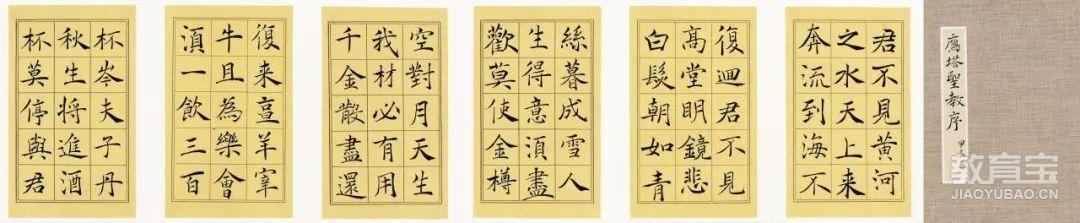 鴈塔聖教序
君不見黃河
之水天上来
奔流到海不
復迴君不見
髙堂明鏡悲
白髮朝如青
絲暮成雪人
生得意湏盡
歡莫使金樽
空對月天生
我材必有用
千金散盡還
復来亶羊宰
牛且為樂會
湏一飲三百
杯岑夫子丹
秋生將進酒
杯莫停與君
教育宝
JIAOYUBAO.CN